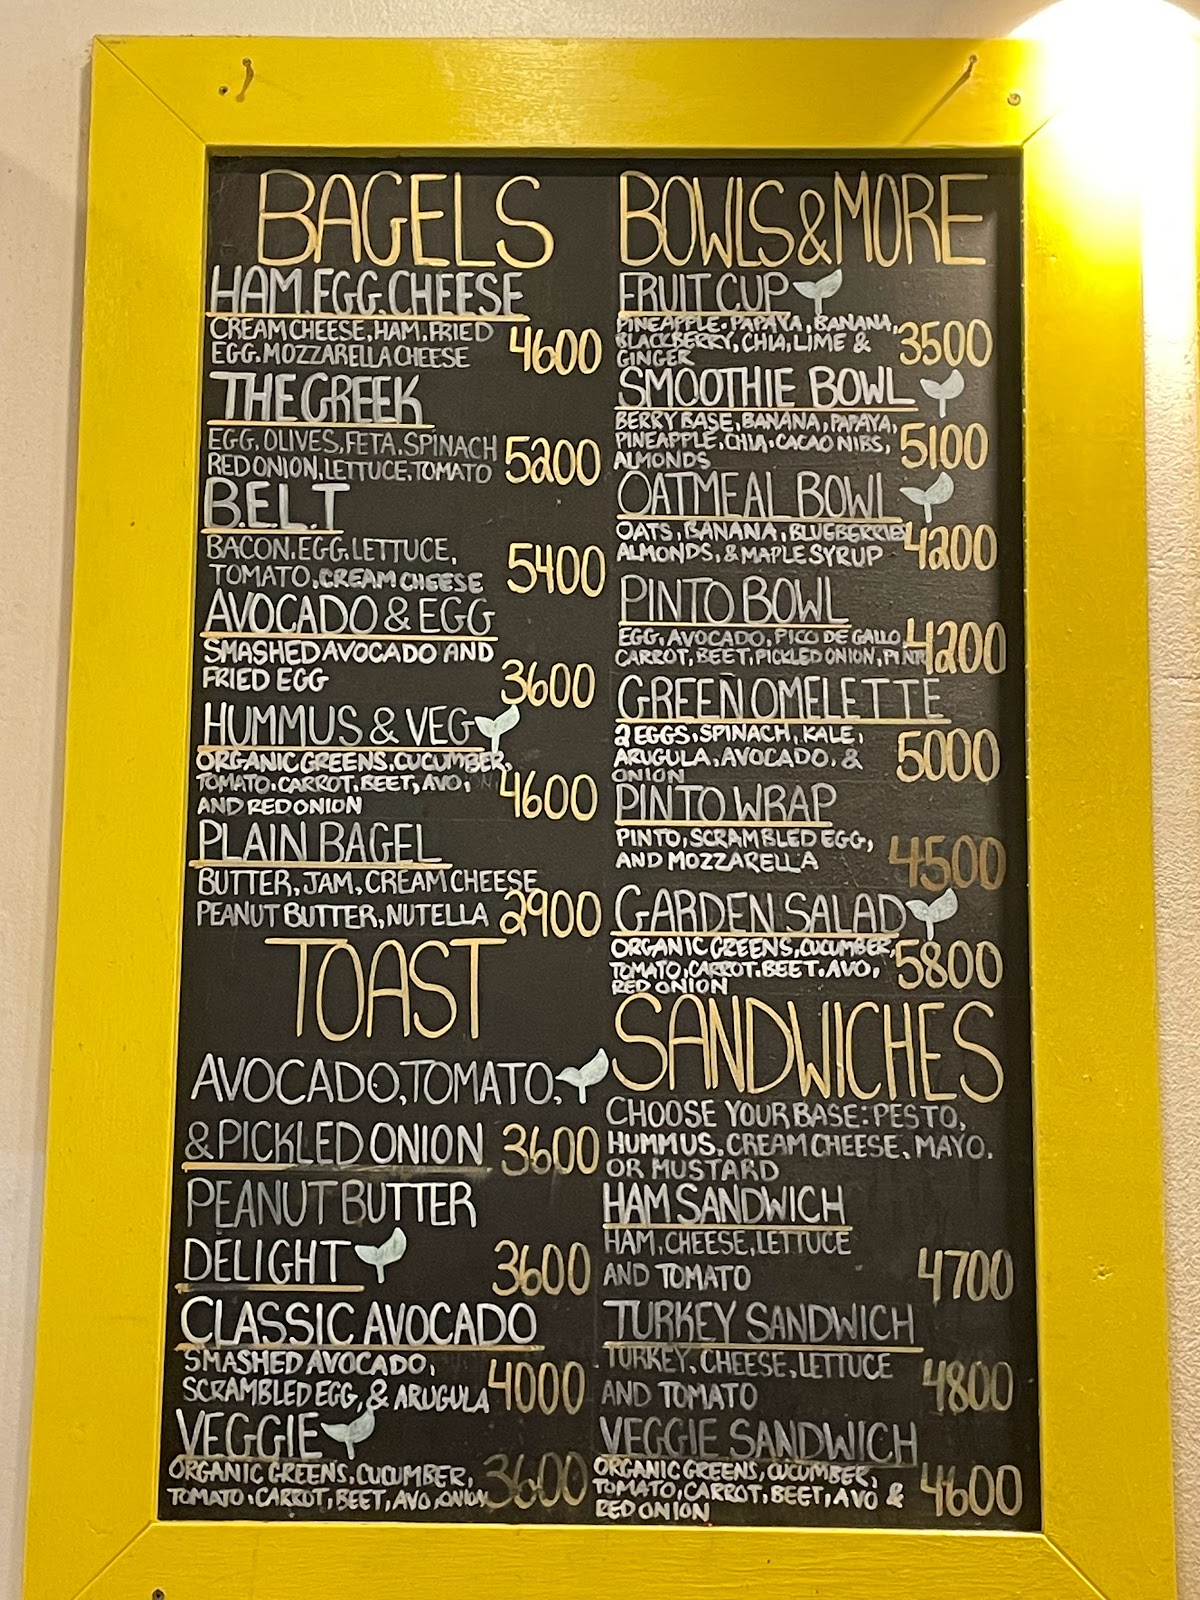 BAGELS
HAM.EGG.CHEESE
CREAM CHEESE, HAM, FRIED
EGG, MOZZARELLA CHEESE
4600
THE GREEK
EGG, OLIVES, FETA, SPINACH
RED ONION, LETTUCE, TOMATO
5200
B.E.L.T
BACON, EGG, LETTUCE,
TOMATO, CREAM CHEESE
5400
AVOCADO & EGG
SMASHED AVOCADO AND
FRIED EGG
3600
HUMMUS & VEG
ORGANIC GREENS, CUCUMBER,
TOMATO, CARROT, BEET, AVO,
AND RED ONION
4600
PLAIN BAGEL
BUTTER, JAM, CREAM CHEESE
PEANUT BUTTER, NUTELLA
2900
TOAST
AVOCADO, TOMATO,
& PICKLED ONION 3600
PEANUT BUTTER
DELIGHT 3600
CLASSIC AVOCADO
SMASHED AVOCADO,
SCRAMBLED EGG, & ARUGULA
4000
VEGGIE
ORGANIC GREENS, CUCUMBER,
TOMATO, CARROT, BEET, AVO, ONION
3600
BOWLS & MORE
FRUIT CUP
PINEAPPLE, PAPAYA, BANANA,
BLACKBERRY, CHIA, LIME &
GINGER
3500
SMOOTHIE BOWL
BERRY BASE, BANANA, PAPAYA,
PINEAPPLE, CHIA, CACAO NIBS,
ALMONDS
5100
OATMEAL BOWL
OATS, BANANA, BLUEBERRIES
ALMONDS, & MAPLE SYRUP
4200
PINTO BOWL
EGG, AVOCADO, PICO DE GALLO
CARROT, BEET, PICKLED ONION, PINT
4200
GREEN OMELETTE
2 EGGS, SPINACH, KALE,
ARUGULA, AVOCADO, &
ONION
5000
PINTO WRAP
PINTO, SCRAMBLED EGG,
AND MOZZARELLA
4500
GARDEN SALAD
ORGANIC GREENS, CUCUMBER,
TOMATO, CARROT, BEET, AVO,
RED ONION
5800
SANDWICHES
CHOOSE YOUR BASE: PESTO,
HUMMUS, CREAM CHEESE, MAYO,
OR MUSTARD
HAM SANDWICH
HAM, CHEESE, LETTUCE
AND TOMATO
4700
TURKEY SANDWICH
TURKEY, CHEESE, LETTUCE
AND TOMATO
4800
VEGGIE SANDWICH
ORGANIC GREENS, CUCUMBER,
TOMATO, CARROT, BEET, AVO &
RED ONION
4600